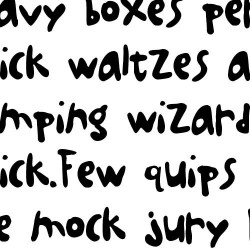 avy boxes per
ick waltzes a
mping wizard
ick.Few quips
e mock jury